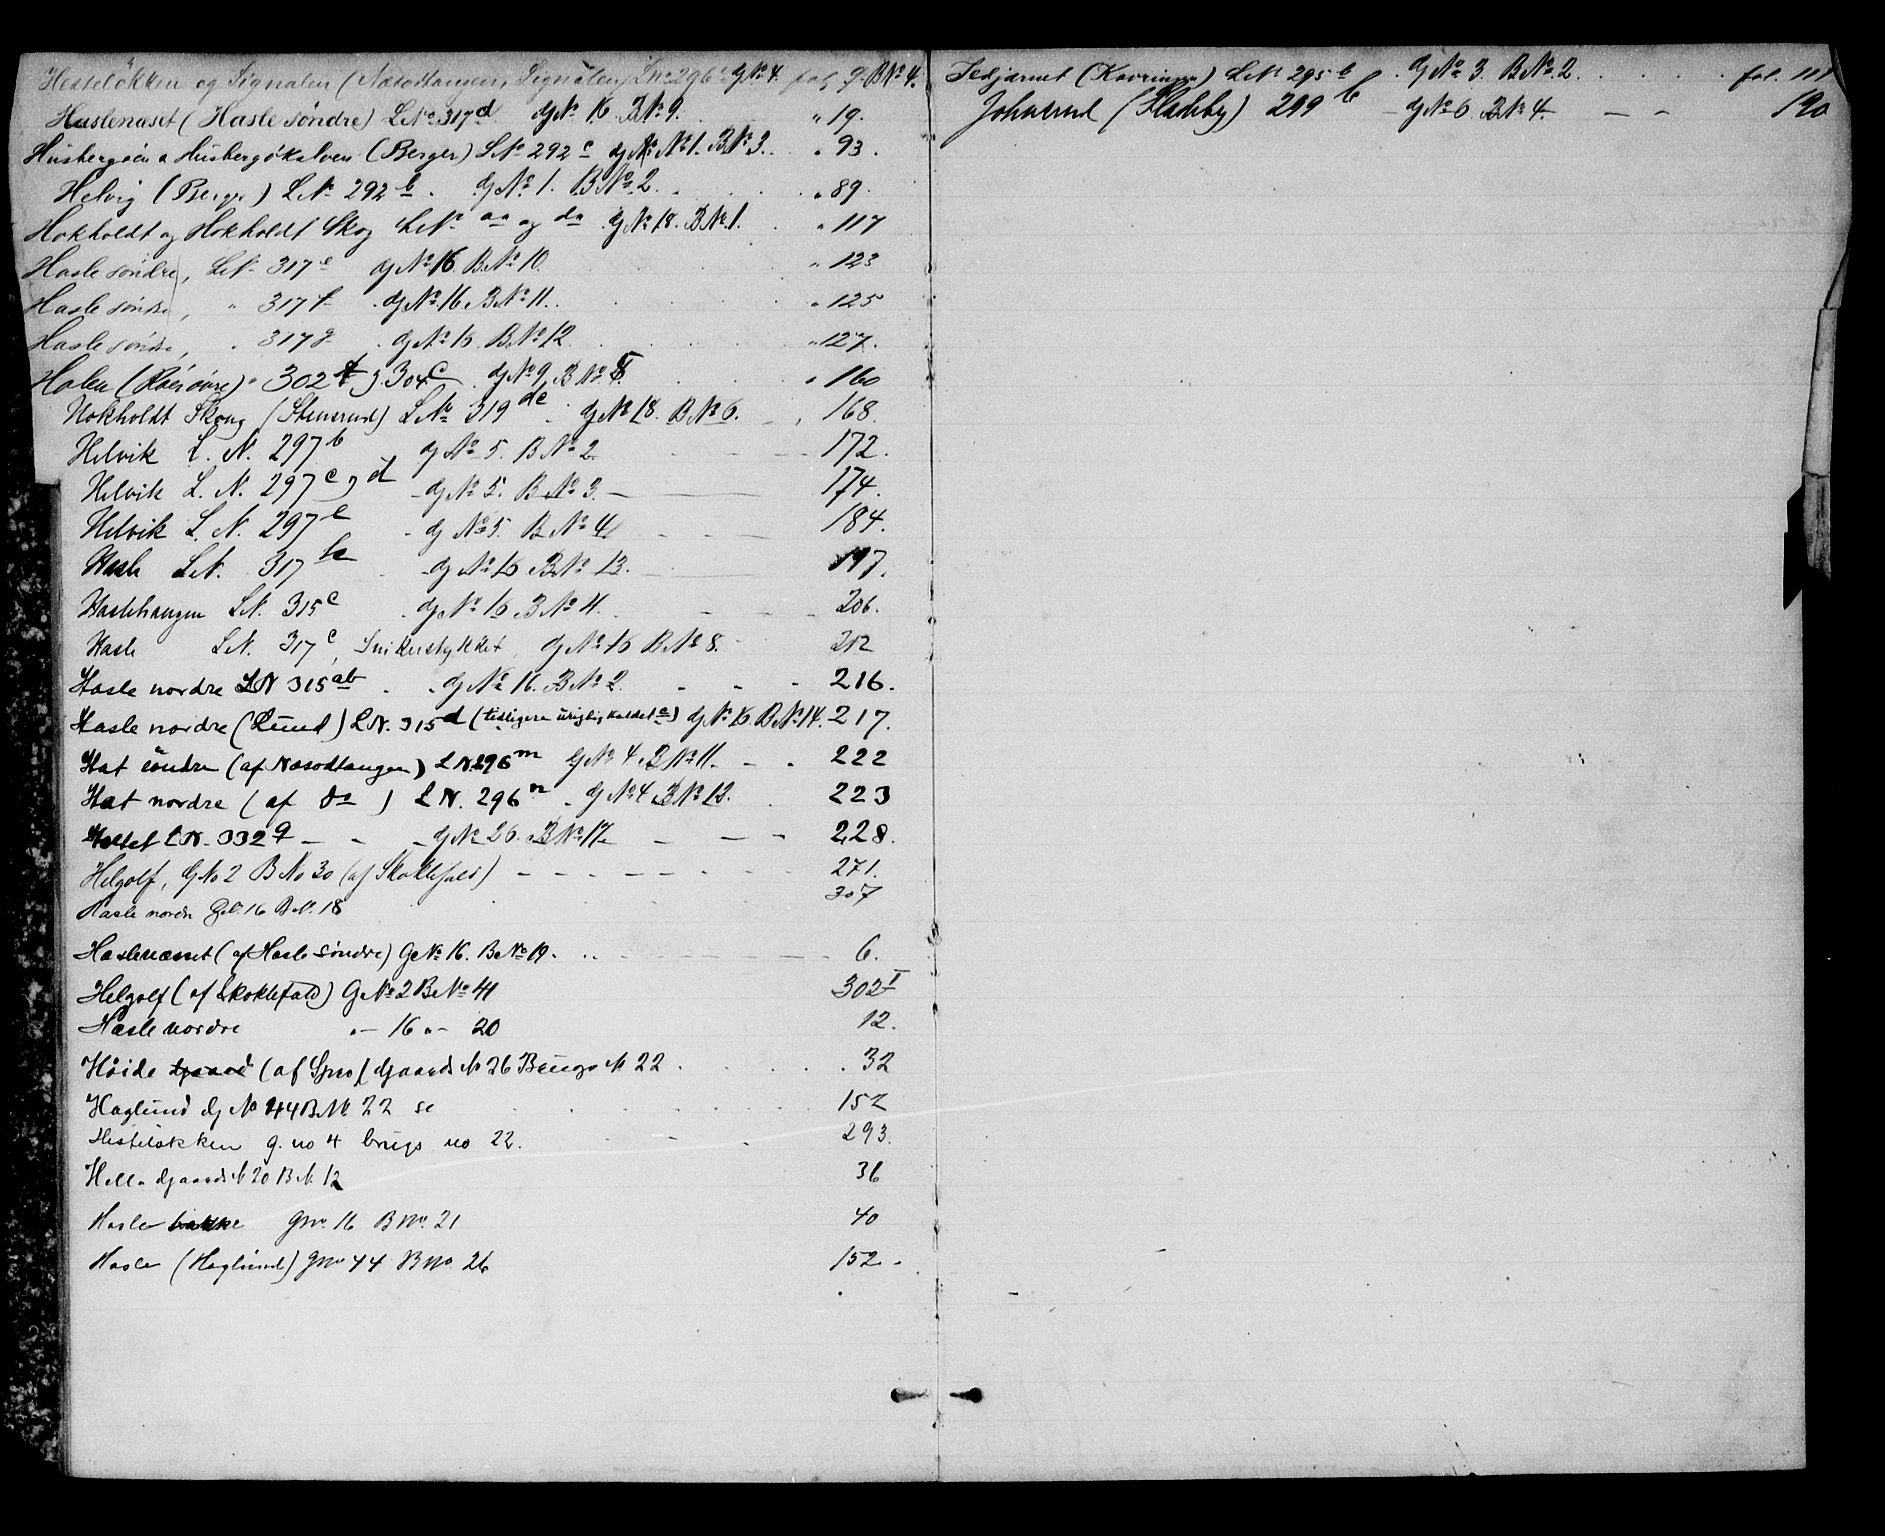 Hesteløkken og Signalen (Næsodtangen, Signalen) L№ 296 G№ 4. fol. 9. B№ 4.
Haslenæset (Hasle søndre) L№ 317 d G№ 16 B№ 9. " 19.
Husbergøen o Husbergøkalven (Berger) L№ 292 c G№ 1. B№ 3. " 93.
Helvig (Berger) L№ 292 b. G№ 1. B№ 2. " 89.
Hokholdt og Hokholdt Skog L№ aa og da G№ 18. B№ 1. " 117
Hasle søndre, L№ 317 e G№ 16 B№ 10. " 123
Hasle søndre, " 317 f G№ 16 B№ 11. " 125
Hasle søndre, " 317 g G№ 16 B№ 12 " 127.
Holen (Roer øvre) " 302 f, 304 c G№ 9, B№ 5. " 160
Hokholdt Skoug (Stensrud) L№ 319 de G№ 18. B№ 6. 168.
Helvik L. N. 297 b G№ 5. B№ 2 172.
Helvik L. N. 297 c, d G№ 5. B№ 3. 174.
Helvik L. N. 297 e G№ 5. B№ 4 184.
Hasle L.N. 317 h G№ 16 B№ 13. 197.
Haslehaugen L.N. 315 c G№ 16 B№ 4. 206.
Hasle L.N. 317 c, Snikerstykket, G№ 16 B№ 8. 212
Hasle nordre LN 315 ab G№ 16. B№ 2. 216.
Hasle nordre (Lund) LN. 315 d (tidligere urigtig kaldet c) G№ 16 B№ 14. 217.
Hat søndre (af Næsodtangen) LN. 296 m G№ 4 B№ 11. 222
Hat nordre (af do) LN. 296 n G№ 4 B№ 12. 223
Holtet LN. 332 q G№ 26. B№ 17. 228.
Helgolf, GNo 2 BNo 30 (af Skoklefald) 271.
Hasle nordre G.N. 16 B.N. 18 307
Haslenæsset (af Hasle søndre) G№ 16. B№ 19. 6.
Helgolf (af Skoklefald) G№ 2 B№ 41 302 I
Hasle nordre "— 16 "— 20 12.
Høide Gaard (af Spro) Gaards N 26 Brugs N 22 32
Haglund G№ 44 B№ 22 se 152
Hesteløkken g. no 4 brugs no 22. 293.
Hella Gaards N 20 B.N. 12 36
Hasle bakke Gno. 16 Bno. 21 40
Hasle (Haglund) Gno 44 Bno 26 152.
Ildjernet (Kavringen) L№ 295 b G№ 3. B№ 2. fol. 111
Johnsrud (Fladeby) 299 b G№ 6 B№ 4. 190